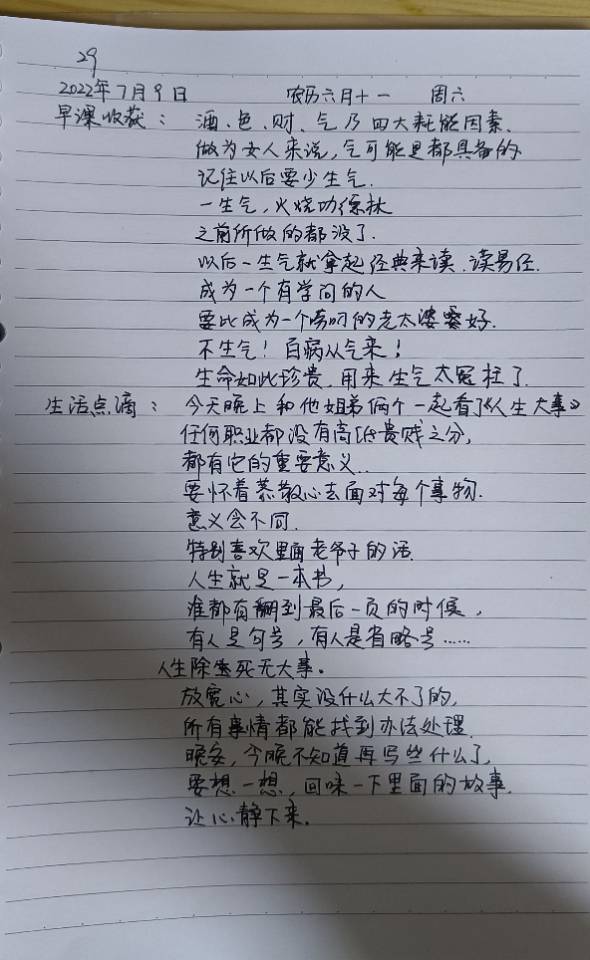 29
2022年7月9日 农历六月十一 周六
早课收获: 酒、色、财、气乃四大耗能因素.
做为女人来说,气可能是都具备的.
记住以后要少生气.
一生气,火烧功德林
之前所做的都没了.
以后一生气就拿起经典来读.读易经.
成为一个有学问的人
要比成为一个唠叨的老太婆要好.
不生气!百病从气来!
生命如此珍贵,用来生气太冤枉了.
生活点滴: 今天晚上和他姐弟俩个一起看了《人生大事》
任何职业都没有高低贵贱之分,
都有它的重要意义..
要怀着恭敬心去面对每个事物.
意义会不同.
特别喜欢里面老爷子的话.
人生就是一本书,
谁都有翻到最后一页的时候,
有人是句号,有人是省略号……
人生除生死无大事.
放宽心,其实没什么大不了的,
所有事情都能找到办法处理.
晚安,今晚不知道再写些什么了,
要想一想,回味一下里面的故事.
让心静下来.